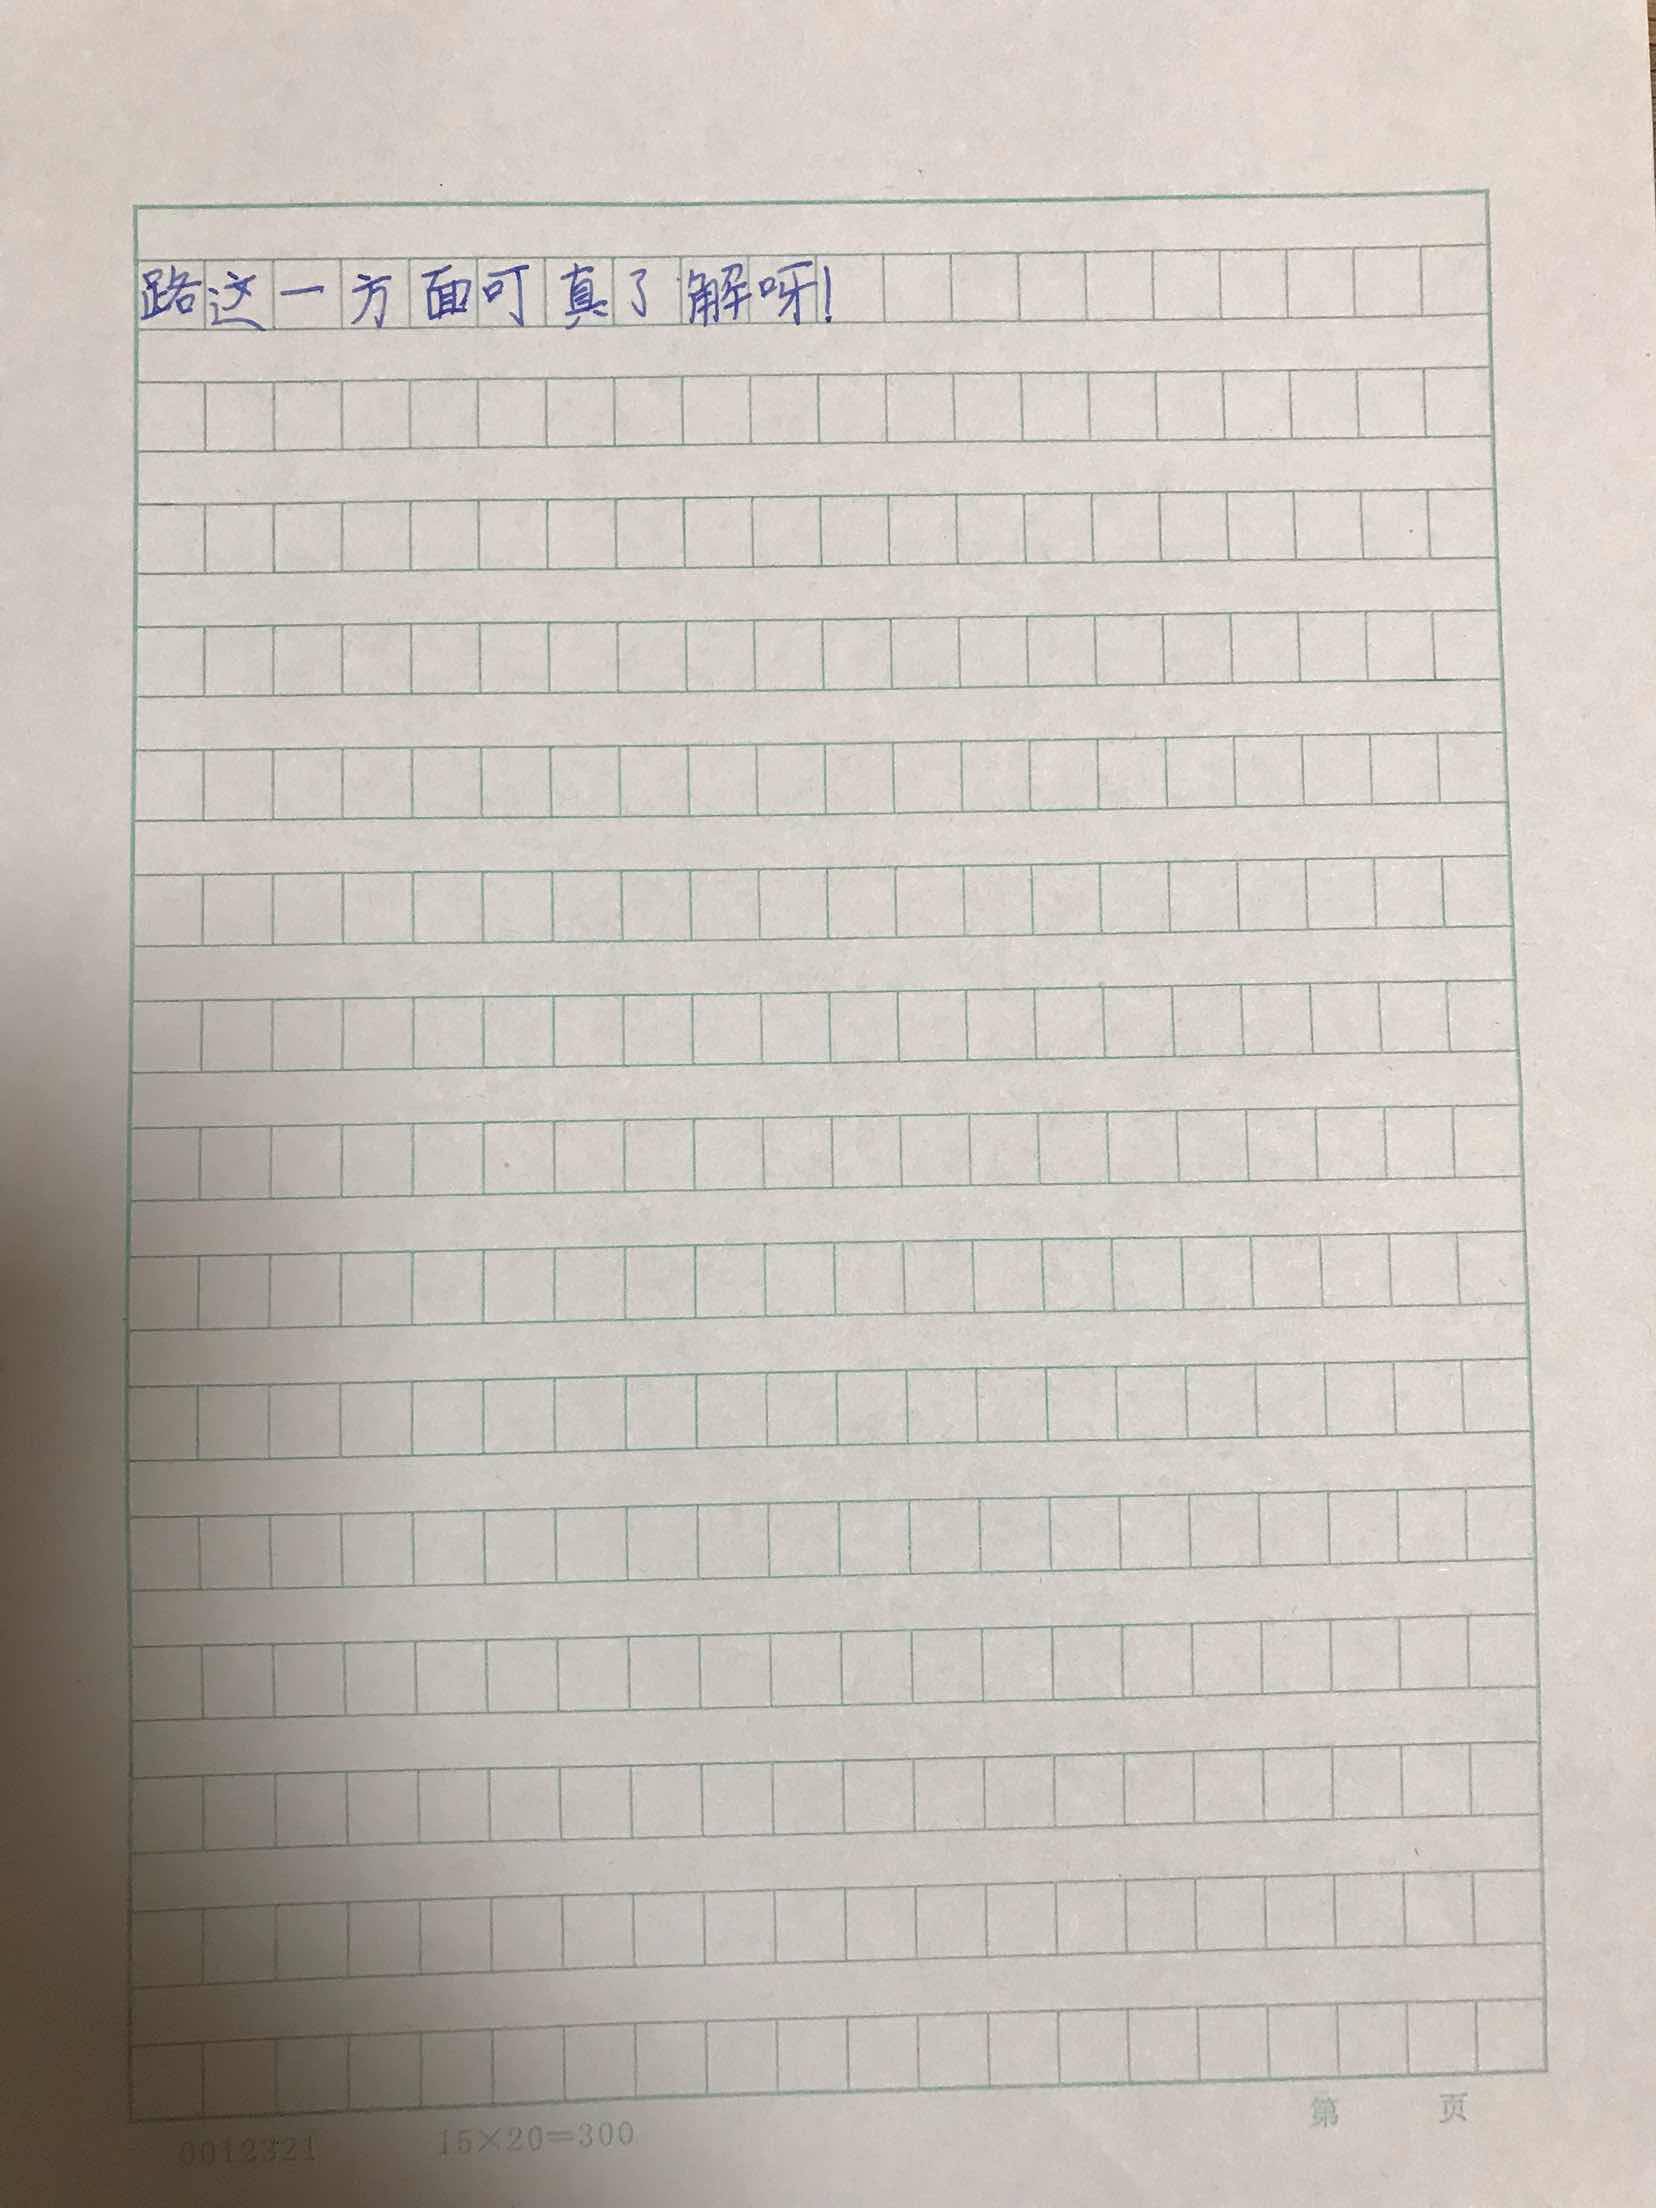 路这一方面可真了解呀!
0012321 15×20=300 第 页